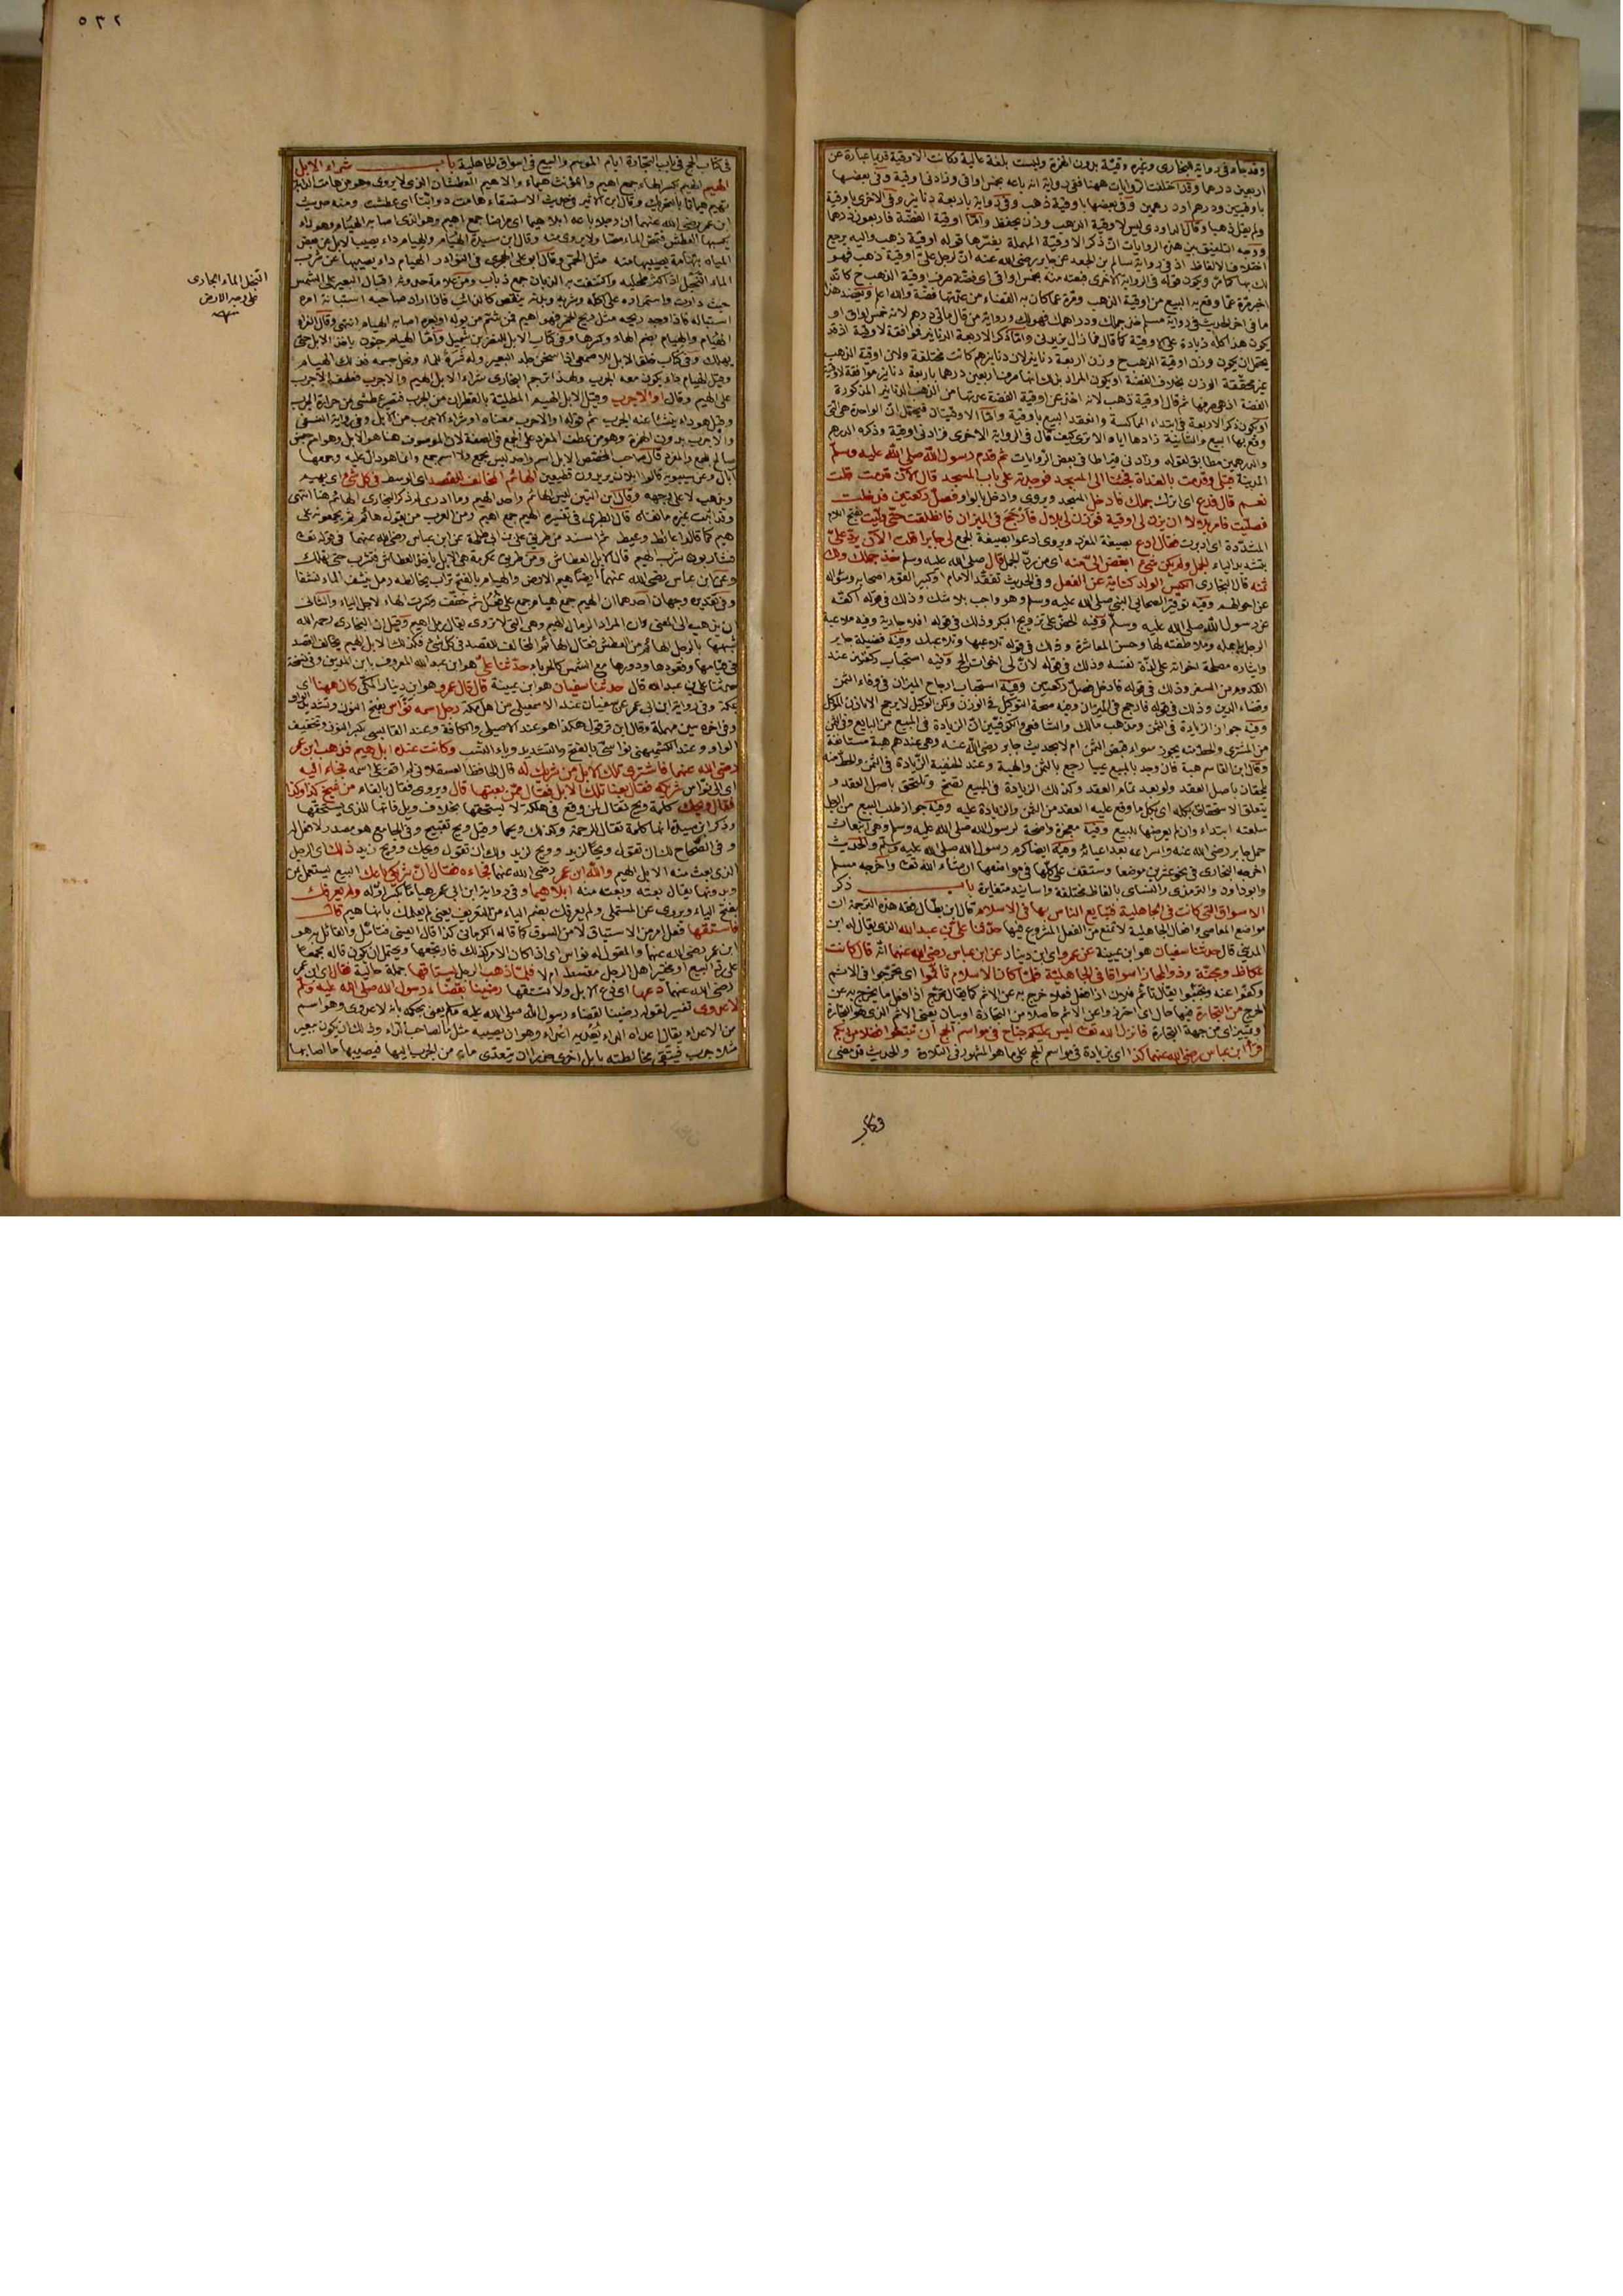 وقد جاء في رواية البخاري وغيره وقية بدون الهمزة وليست بلغة عالية وكانت الاوقية قديما عبارة عن
اربعين درهما وقد اختلفت الروايات ههنا ففي رواية انه باعه بخمس اواقي وزادني اوقية وفي بعضها
باوقيتين ودرهم او درهمين وفي بعضها باوقية ذهب وفي رواية باربعة دنانير وفي الاخرى باوقية
ولم يقل ذهبا وقال الداودي ليس لاوقية الذهب وزن يحفظ واما اوقية الفضة فاربعون درهما
ووجه التلفيق بين هذه الروايات ان ذكر الاوقية المهملة يفسرها قوله اوقية ذهب واليه يرجع
اختلاف الالفاظ اذ في رواية سالم بن ابي الجعد عن جابر رضي الله عنه ان لرجل علي اوقية ذهب فهو
لك بها كما مر ويكون قوله في الرواية الاخرى فبعته منه بخمس اواقي اي فضة صرف اوقية الذهب ح كانه
اخبر مرة عما وقع به البيع من اوقية الذهب ومرة عما كان به القضاء من عدتها فضة والله اعلم ويعضد هذا
ما في اخر الحديث في رواية مسلم خذ جملك ودراهمك فهو لك ورواية من قال مائتي درهم لانه خمس اواق او
يكون هذا كله زيادة على الاوقية كما قال فما زال يزيدني واما ذكر الاربعة الدنانير فموافقة لاوقية اذ قد
يحتمل ان يكون وزن اوقية الذهب ح وزن اربعة دنانير لان دنانيرهم كانت مختلفة ولان اوقية الذهب
غير محققة الوزن بخلاف الفضة او يكون المراد بذلك انها صرف اربعين درهما باربعة دنانير موافقة لاوقية
الفضة اذ هي صرفها ثم قال اوقية ذهب لانه اخذ عن اوقية الفضة عدتها من الذهب الدنانير المذكورة
او يكون ذكر الاربعة في ابتداء المماكسة وانعقد البيع باوقية واما الاوقيتان فيحتمل ان الواحدة هي التي
وقع بها البيع والثانية زادها اياه الا ترى كيف قال في الرواية الاخرى فزادني اوقية وذكره الدرهم
والدرهمين مطابق لقوله وزادني قيراطا في بعض الروايات ثم قدم رسول الله صلى الله عليه وسلم
المدينة قبلي وقدمت بالغداة فجئنا الى المسجد فوجدته على باب المسجد قال الان قدمت قلت
نعم قال فدع اي اترك جملك فادخل المسجد ويروى وادخل بالواو فصل ركعتين فدخلت
فصليت فامر بلالا ان يزن لي اوقية فوزن لي بلال فارجح في الميزان فانطلقت حتى وليت بفتح اللام
المشددة اي ادبرت فقال ادع بصيغة المفرد ويروى ادعوا بصيغة الجمع لي جابرا قلت الان يرد علي
بتشديد الياء الجمل ولم يكن شيء ابغض الي منه اي من رد الجمل قال صلى الله عليه وسلم خذ جملك ولك
ثمنه قال البخاري الكيس الولد كناية عن الفعل وفي الحديث تفقد الامام او كبير القوم اصحابه وسؤاله
عن احوالهم وفيه توقير الصحابي النبي صلى الله عليه وسلم وهو واجب بلا شك وذلك في قوله اكفه
عن رسول الله صلى الله عليه وسلم وفيه الحض على تزويج البكر وذلك في قوله افلا جارية وفيه ملاعبة
الرجل باهله وملاطفته لها وحسن المعاشرة وذلك في قوله تلاعبها وتلاعبك وفيه فضيلة جابر
وايثاره مصلحة اخواته على لذة نفسه وذلك في قوله لان لي اخوات الخ وفيه استحباب ركعتين عند
القدوم من السفر وذلك في قوله فادخل فصل ركعتين وفيه استحباب ارجاح الميزان في وفاء الثمن
وقضاء الدين وذلك في قوله فارجح في الميزان وفيه صحة التوكيل في الوزن ولكن الوكيل لا يرجح الا باذن الموكل
وفيه جواز الزيادة في الثمن ومذهب مالك والشافعي والكوفيين ان الزيادة في المبيع من البايع وفي الثمن
من المشتري والحط منه يجوز سواء قبض الثمن ام لا بحديث جابر رضي الله عنه وهي عندهم هبة مستأنفة
وقال ابن القاسم هبة فان وجد بالمبيع عيبا رجع بالثمن والهبة وعند الحنفية الزيادة في الثمن والحط منه
يلحقان باصل العقد ولو بعد تمام العقد وكذلك الزيادة في المبيع تصح وتلتحق باصل العقد و
يتعلق الاستحقاق بكله اي بكل ما وقع عليه العقد من الثمن والزيادة عليه وفيه جواز طلب البيع من الرجل
سلعته ابتداء وان لم يعرضها للبيع وفيه معجزة واضحة لرسول الله صلى الله عليه وسلم وهي انبعاث
جمل جابر رضي الله عنه واسراعه بعد اعيائه وفيه ايضا كرم رسول الله صلى الله عليه وسلم والحديث
اخرجه البخاري في نحو عشرين موضعا وستقف على كلها في مواضعها ان شاء الله تعالى واخرجه مسلم
وابو داود والترمذي والنسائي بالفاظ مختلفة واسانيد متغايرة باب ذكر
الاسواق التي كانت في الجاهلية فتبايع الناس بها في الاسلام قال ابن بطال فقه هذه الترجمة ان
مواضع المعاصي وافعال الجاهلية لا تمنع من الفعل المشروع فيها حدثنا علي بن عبد الله الذي يقال له ابن
المديني قال حدثنا سفيان هو ابن عيينة عن عمرو اي ابن دينار عن ابن عباس رضي الله عنهما انه قال كانت
عكاظ ومجنة وذو المجاز اسواقا في الجاهلية فلما كان الاسلام تأثموا اي تحرجوا في الاثم
وكفوا عنه وتجنبوا يقال تأثم فلان اذا فعل فعلا خرج به عن الاثم كما يقال تحرج اذا فعل ما يخرج به عن
الحرج من التجارة فيها حال اي احترزوا عن الاثم حاصلا من التجارة او بيان بمعنى الاثم الذي هو التجارة
وتمييز اي من جهة التجارة فانزل الله تعالى ليس عليكم جناح في مواسم الحج ان تبتغوا فضلا من ربكم
قرأ ابن عباس رضي الله عنهما كذا اي بزيادة في مواسم الحج على ما هو المشهور في التلاوة والحديث قد مضى
في كتاب
٥٣٢
في كتاب الحج في باب التجارة ايام الموسم والبيع في اسواق الجاهلية باب شراء الابل
الهيم الهيم بكسر الهاء جمع اهيم والمؤنث هيماء والاهيم العطشان الذي لا يروى وهو من هامت الدابة
تهيم هيمانا بالتحريك وقال ابن الاثير وفي حديث الاستسقاء وهامت دوابنا اي عطشت ومنه حديث
ابن عمر رضي الله عنهما ان رجلا باعه ابلا هيما اي مراضا جمع اهيم وهو الذي اصابه الهيام وهو داء
يكسبها العطش فتمص الماء مصا ولا يروى منه وقال ابن سيدة الهيام والهيام داء يصيب الابل عن بعض
المياه بتهامة يصيبها منه مثل الحمى وقال ابو علي الهجري في النوادر الهيام داء يصيبها عن شرب
الماء النجل اذا كثر طحلبه واكتنفت به الذبان جمع ذباب ومن علامة حدوثه اقبال البعير على الشمس
حيث دارت واستمراره على اكله وشربه وبدنه ينقص كالذائب فاذا اراد صاحبه استبانة امره
استباله فاذا وجد ريحه مثل ريح الخمر فهو اهيم فمن شم من بوله او بعره اصابه الهيام انتهى وقال الفراء
الهيام والهيام بضم الهاء وكسرها وفي كتاب الابل للنضر بن شميل واما الهيام فجنون ياخذ الابل حتى
يهلك وفي كتاب خلق الابل للاصمعي اذا سخن جلد البعير وله شره للماء ونحل جسمه فذلك الهيام
وقيل الهيام داء يكون معه الجرب ولهذا ترجم البخاري شراء الابل الهيم والاجرب فعطف الاجرب
على الهيم وقال او الاجرب وقيل الابل الهيم المطلية بالقطران من الجرب فتصير عطشى من حرارة الجرب
وقيل هو داء ينشأ عنه الجرب ثم قوله او الاجرب معناه او شراء الاجرب من الابل وفي رواية النسفي
والاجرب بدون الهمزة وهو من عطف المفرد على الجمع في الصفة لان الموصوف هنا هو الابل وهو اسم جنس
صالح للجمع والمفرد قال صاحب المخصص الابل اسم واحد ليس بجمع ولا اسم جمع وانما هو دال عليه وجمعها
آبال وعن سيبويه قالوا ابلان يريدون قطيعين الهائم المخالف للقصد اي الوسط في كل شيء اي يهيم
ويذهب لا على وجهه وقال ابن التين ليس الهائم واحد الهيم وما ادري لم ذكر البخاري الهائم هنا انتهى
وقد اثبت غيره ما نفاه قال الطبري في تفسيره الهيم جمع اهيم ومن العرب من يقول هائم ثم يجمعونه على
هيم كما قالوا عائط وعيط ثم اسند من طريق علي بن ابي طلحة عن ابن عباس رضي الله عنهما في قوله تعالى
فشاربون شرب الهيم قال الابل العطاش ومن طريق عكرمة هي الابل ياخذ العطاش فتشرب حتى تهلك
وعن ابن عباس رضي الله عنهما ايضا هيم الارض والهيام بالفتح تراب يخالطه رمل ينشف الماء نشفا
وفي تقديره وجهان احدهما ان الهيم جمع هيام وجمع على فعل ثم خفف وكسرت الهاء لاجل الياء والثاني
ان يذهب الى المعنى وان المراد الرمال الهيم وهي التي لا تروى يقال رمل اهيم وقيل ان البخاري رحمه الله
شبهها بالرجل الهائم من العطش فقال الهائم المخالف للقصد في كل شيء فكذلك الابل الهيم يخالف القصد
في قيامها وقعودها ودورها مع الشمس كالحرباء حدثنا علي هو ابن عبد الله المعروف بابن المديني وفي نسخة
حدثنا علي بن عبد الله قال حدثنا سفيان هو ابن عيينة قال قال عمرو هو ابن دينار المكي كان ههنا اي
بمكة وفي رواية ابن ابي عمر عن سفيان عند الاسمعيلي من اهل مكة رجل اسمه نواس بفتح النون وتشديد الواو
وفي اخره سين مهملة وقال ابن قرقول هكذا هو عند الاصيلي والكافة وعند القابسي بكسر النون وتخفيف
الواو وعند الكشميهني نواسي بالفتح والتشديد وياء النسب وكانت عنده ابل هيم فذهب ابن عمر
رضي الله عنهما فاشترى تلك الابل من شريك له قال الحافظ العسقلاني لم اقف على اسمه فجاء اليه
اي الى نواس شريكه فقال بعنا تلك الابل فقال ممن بعتها قال ويروى فقال بالفاء من شيخ كذا وكذا
فقال ويحك كلمة ويح تقال لمن وقع في هلكة لا يستحقها بخلاف ويل فانها للذي يستحقها
وذكر ابن سيدة انها كلمة تقال للرحمة وكذلك ويحما وقيل ويح تقبيح وفي الجامع هو مصدر لا فعل له
وفي الصحاح لك ان تقول ويحا لزيد وويح لزيد ولك ان تقول ويحك وويح زيد ذلك اي الرجل
الذي بعت منه الابل الهيم والله ابن عمر رضي الله عنهما فجاءه فقال ان شريكي باعك البيع يستعمل بمن
وبدونها يقال بعته وبعته منه ابلا هيما وفي رواية ابن ابي عمر هياما بكسر اوله ولم يعرفك
بفتح الياء ويروى عن المستملي ولم يعرفك بضم الياء من التعريف يعني لم يعلمك بانها هيم قال
فاستقها فعل امر من الاستياق لا من السوق كما قاله الكرماني كذا قال العيني فتأمل والقائل به هو
ابن عمر رضي الله عنهما والمقول له نواس اي اذا كان الامر كذلك فارتجعها ويحتمل ان يكون قاله مجمعا
على رد المبيع او مختبرا هل الرجل مغتبط ام لا فلما ذهب الرجل يستاقها جملة حالية فقال اي ابن عمر
رضي الله عنهما دعها اي دع الابل ولا تستقها رضينا بقضاء رسول الله صلى الله عليه وسلم
لا عدوى تفسير لقوله رضينا بقضاء رسول الله صلى الله عليه وسلم يعني بحكمه بانه لا عدوى وهو اسم
من الاعداء يقال اعداه الداء يعديه اعداء وهو ان يصيبه مثل ما لصاحب الداء وذلك ان يكون ببعير
مثلا جرب فيتقى مخالطته بابل اخرى حذرا ان يتعدى ما به من الجرب اليها فيصيبها ما اصابها
النجل الماء الجاري
على وجه الارض